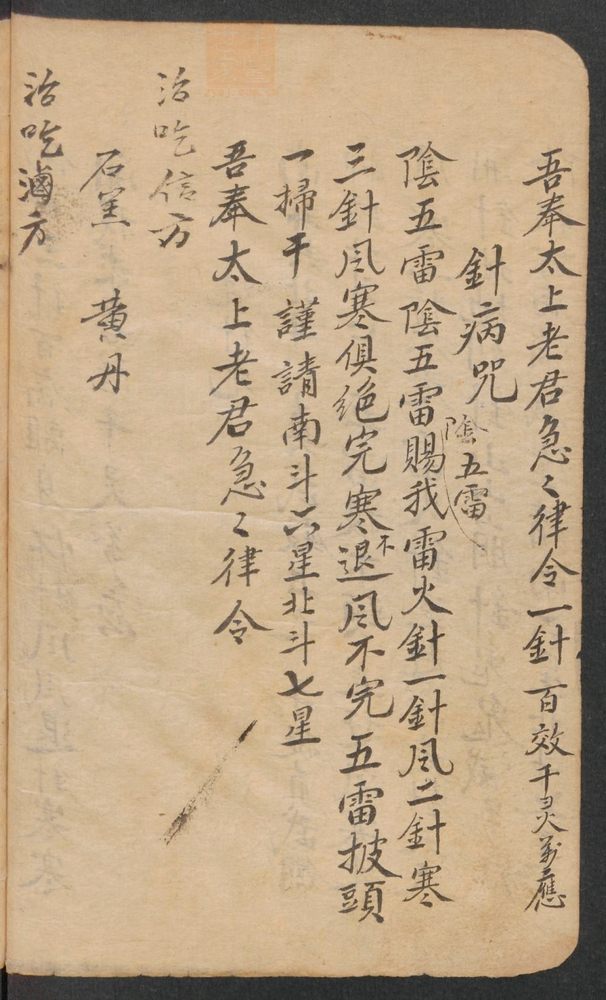 吾奉太上老君急々律令一針百效千灵万應
針病咒
陰五雷
陰五雷陰五雷賜我雷火針一針风二針寒
三針风寒俱绝完寒不退风不完五雷披頭
一掃干謹請南斗六星北斗七星
吾奉太上老君急々律令
治吃信方
石羔 黄丹
治吃滷方